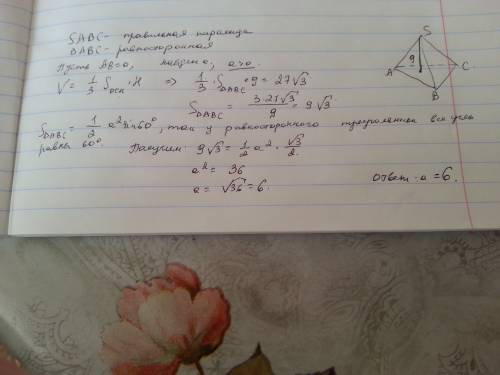 SABC – правильная пирамида
ΔABC – равносторонняя
Пусть AB=a, найдем a, a>0.
V = 1/3 Sосн · H ⇒ 1/3 · SΔABC · 9 = 27√3
SΔABC = 3·27√3/9 = 9√3
SΔABC = 1/2 a² sin60°, так у равностороннего треугольника все углы
равны 60°. Получим: 9√3 = 1/2 a² · √3/2
a² = 36
a = √36 = 6.
Ответ: a = 6.
S
9
A
C
B